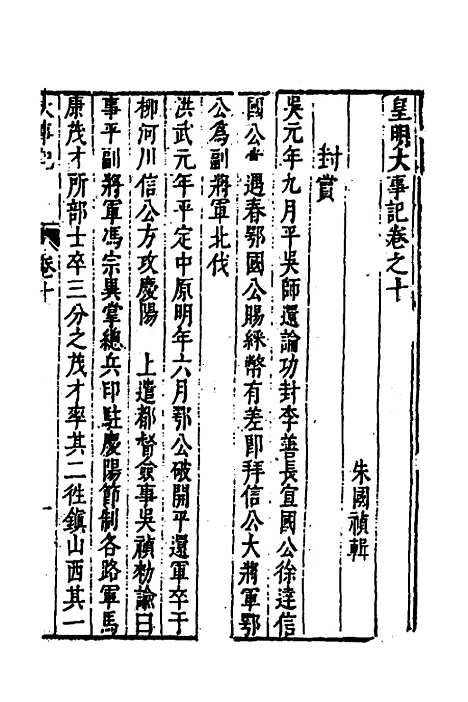 皇明大事記卷之十
朱國禎輯
封賞
吳元年九月平吳師還論功封李善長宣國公徐達信
國公常遇春鄂國公賜綵幣有差即拜信公大將軍鄂
公爲副將軍北伐
洪武元年平定中原明年六月鄂公破開平還軍卒于
柳河川信公方攻慶陽 上遣都督僉事吳禎勑諭曰
事平副將軍馮宗異掌總兵印駐慶陽節制各路軍馬
康茂才所部士卒三分之茂才率其二徃鎮山西其一
大事記 卷十